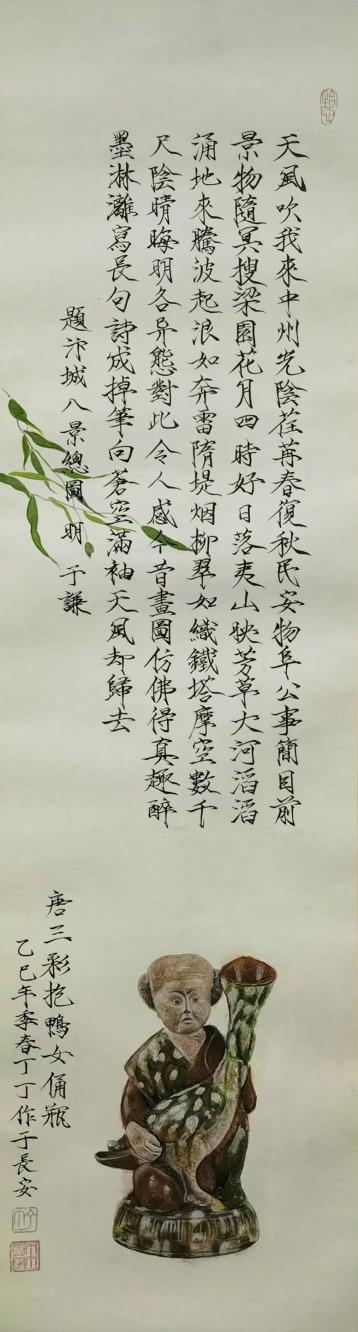 天風吹我來中州光陰荏苒春復秋民安物阜公事簡目前
景物隨冥搜梁園花月四時好日落夷山映芳草大河滔滔
涌地來騰波起浪如奔雷隋堤烟柳翠如織鐵塔摩空數千
尺陰晴晦明各异態對此令人感今昔畫圖仿佛得真趣醉
墨淋灕寫長句詩成掉筆向蒼空滿袖天風却歸去
題汴城八景總圖 明 于謙
唐三彩抱鴨女俑瓶
乙巳年季春丁丁作于長安